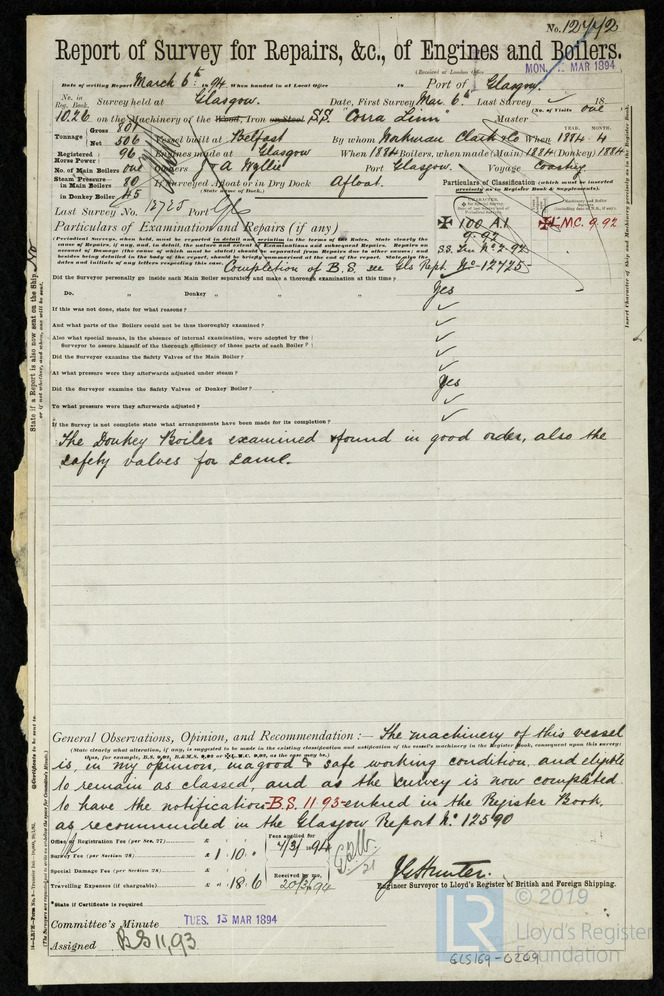 No. 12772
Report of Survey for Repairs, &c., of Engines and Boilers.
(Received at London Office
MON. 12 MAR 1894
Date of writing Report March 6th 1894 When handed in at Local Office 18 Port of Glasgow.
No. in Reg. Book. Survey held at Glasgow. Date, First Survey Mar. 6th Last Survey 18
(No. of Visits one)
1026 on the Machinery of the Wood, Iron or Steel S.S. "Corra Linn" Master
Tonnage Gross 801 Net 506 Vessel built at Belfast By whom Workman Clark & Co When 1884 YEAR. MONTH. 4
Registered Horse Power 96 Engines made at Glasgow When 1884 Boilers, when made (Main) 1884 (Donkey) 1884
No. of Main Boilers one Owners J & A Wyllie Port Glasgow. Voyage Coasting
Steam Pressure in Main Boilers 80 If Surveyed Afloat or in Dry Dock Afloat.
(State name of Dock.)
in Donkey Boiler 45
Particulars of Classification (which must be inserted precisely as in Register Book & Supplements).
Last Survey No. 12725 Port Gls
✠ 100 A1
9.92
✠ L.M.C. 9.92
S.S. Gls No. 2-92
Particulars of Examination and Repairs (if any)
Periodical Surveys, when held, must be reported in detail and seriatim in the terms of the Rules. State clearly the cause of Repairs, if any, and, in detail, the nature and extent of Examinations and subsequent Repairs. Repairs on account of Damage (the cause of which must be stated) should be separated from Repairs due to other causes; and besides being detailed in the body of the report, should be briefly summarised at the end of the report. State also the dates and initials of any letters respecting this case.
Completion of B.S. see Gls Rept. No 12725
Did the Surveyor personally go inside each Main Boiler separately and make a thorough examination at this time?
Do. " Donkey " " " " Yes
If this was not done, state for what reasons?
And what parts of the Boilers could not be thus thoroughly examined?
Also what special means, in the absence of internal examination, were adopted by the Surveyor to assure himself of the thorough efficiency of those parts of each Boiler?
Did the Surveyor examine the Safety Valves of the Main Boiler?
At what pressure were they afterwards adjusted under steam?
Did the Surveyor examine the Safety Valves of Donkey Boiler? Yes
To what pressure were they afterwards adjusted?
If the Survey is not complete state what arrangements have been made for its completion?
The Donkey Boiler examined & found in good order, also the
safety valves for same.
General Observations, Opinion, and Recommendation :— The machinery of this vessel
(State clearly what alteration, if any, is suggested to be made in the existing classification and notification of the vessel's machinery in the Register Book, consequent upon this survey:
is, in my opinion, in a good & safe working condition, and eligible
to remain as classed, and as the survey is now completed
to have the notification B.S. 11 93 entered in the Register Book,
as recommended in the Glasgow Report No. 12590
Office or Registration Fee (per Sec. 27)... £ " " Fees applied for
Survey Fee (per Section 28) £ 1 : 10 : 4/3/1894
Special Damage Fee (per Section 28) £ : :
Travelling Expenses (if chargeable) £ " 18 : 6 Received by me, 20/3/94
J. G. Hunter.
Engineer Surveyor to Lloyd's Register of British and Foreign Shipping.
*State if Certificate is required
Committee's Minute TUES. 13 MAR 1894
Assigned BS 11,93
State if a Report is also now sent on the Ship. No
or if not whether, and when, one will be sent.
Insert Character of Ship and Machinery precisely as in the Register Book.
© 2019
LR
Lloyd's Register
Foundation
GLS169-0269